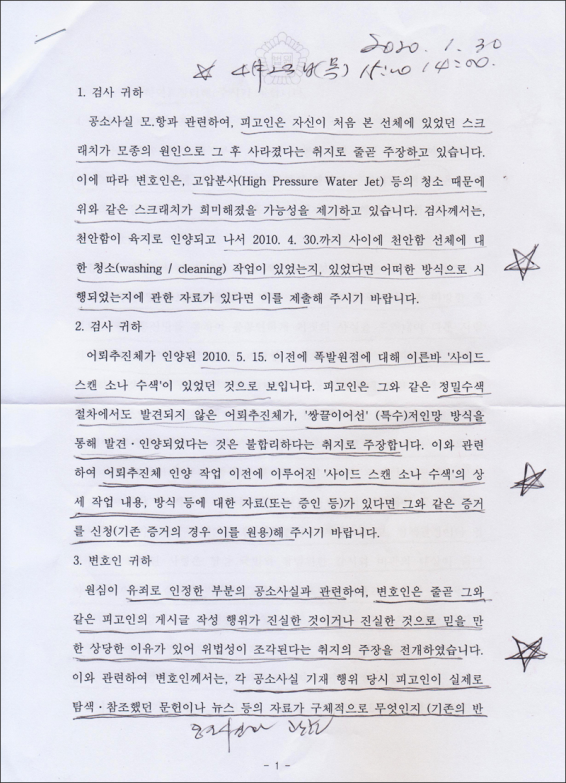 2020. 1. 30
4/23 (목) 15:00 14:00.
1. 검사 귀하
공소사실 모.항과 관련하여, 피고인은 자신이 처음 본 선체에 있었던 스크
래치가 모종의 원인으로 그 후 사라졌다는 취지로 줄곧 주장하고 있습니다.
이에 따라 변호인은, 고압분사(High Pressure Water Jet) 등의 청소 때문에
위와 같은 스크래치가 희미해졌을 가능성을 제기하고 있습니다. 검사께서는,
천안함이 육지로 인양되고 나서 2010. 4. 30.까지 사이에 천안함 선체에 대
한 청소(washing / cleaning) 작업이 있었는지, 있었다면 어떠한 방식으로 시
행되었는지에 관한 자료가 있다면 이를 제출해 주시기 바랍니다.
2. 검사 귀하
어뢰추진체가 인양된 2010. 5. 15. 이전에 폭발원점에 대해 이른바 '사이드
스캔 소나 수색'이 있었던 것으로 보입니다. 피고인은 그와 같은 정밀수색
절차에서도 발견되지 않은 어뢰추진체가, '쌍끌이어선' (특수)저인망 방식을
통해 발견·인양되었다는 것은 불합리하다는 취지로 주장합니다. 이와 관련
하여 어뢰추진체 인양 작업 이전에 이루어진 '사이드 스캔 소나 수색'의 상
세 작업 내용, 방식 등에 대한 자료(또는 증인 등)가 있다면 그와 같은 증거
를 신청(기존 증거의 경우 이를 원용)해 주시기 바랍니다.
3. 변호인 귀하
원심이 유죄로 인정한 부분의 공소사실과 관련하여, 변호인은 줄곧 그와
같은 피고인의 게시글 작성 행위가 진실한 것이거나 진실한 것으로 믿을 만
한 상당한 이유가 있어 위법성이 조각된다는 취지의 주장을 전개하였습니다.
이와 관련하여 변호인께서는, 각 공소사실 기재 행위 당시 피고인이 실제로
탐색·참조했던 문헌이나 뉴스 등의 자료가 구체적으로 무엇인지 (기존의 반
- 1 -